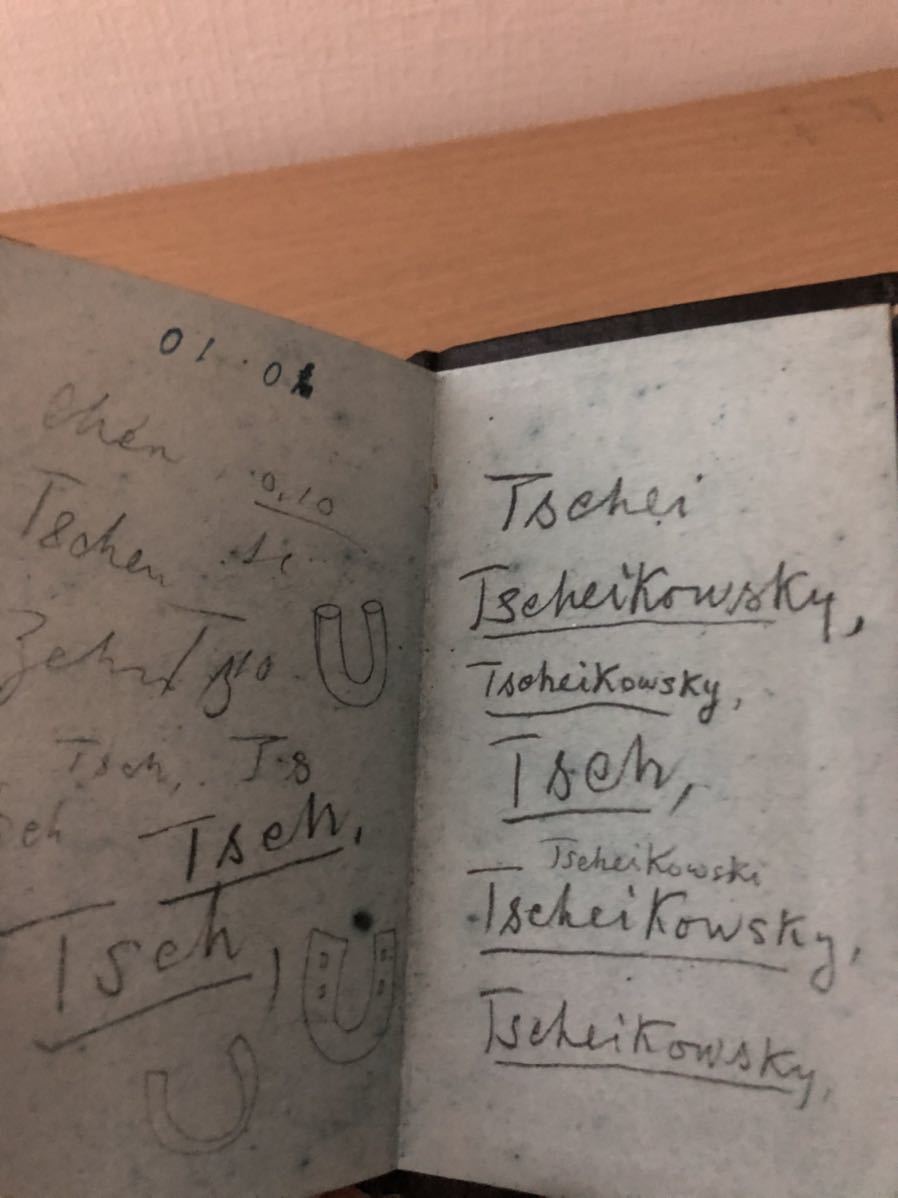 01.01
chen
0,10
Tschen
Tsch, Ts
sch Tsch,
Tsch,
Tschei
Tscheikowsky,
Tscheikowsky,
Tsch,
Tscheikowski
Tscheikowsky,
Tscheikowsky,